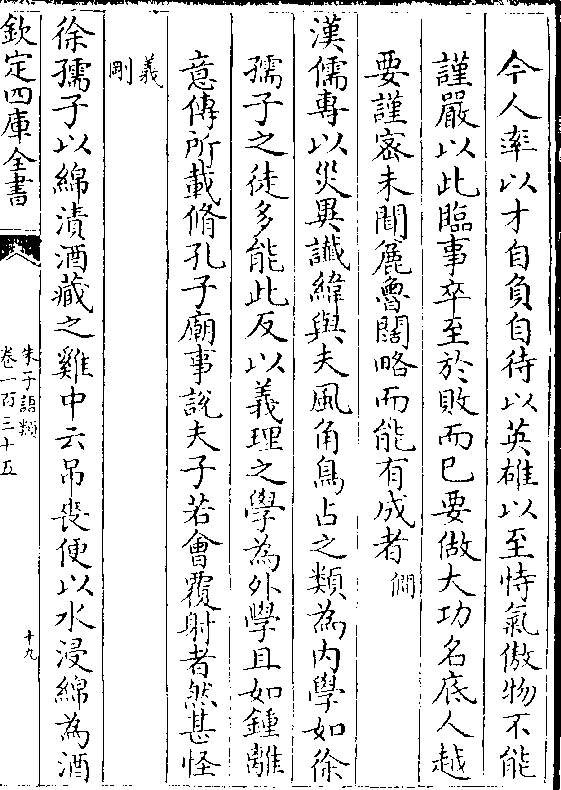 今人率以才自負自待以英雄以至恃氣傲物不能
謹嚴以此臨事卒至於敗而已要做大功名底人越
要謹宻未聞麄魯闊略而能有成者 僩
漢儒專以災異讖緯與夫風角鳥占之類為内學如徐
孺子之徒多能此反以義理之學為外學且如鍾離
意傳所載脩孔子廟事説夫子若㑹覆射者然甚怪
義剛
徐孺子以綿漬酒藏之雞中云吊䘮便以水浸綿為酒
欽定四庫全書
朱子語類
卷一百三十五
十九